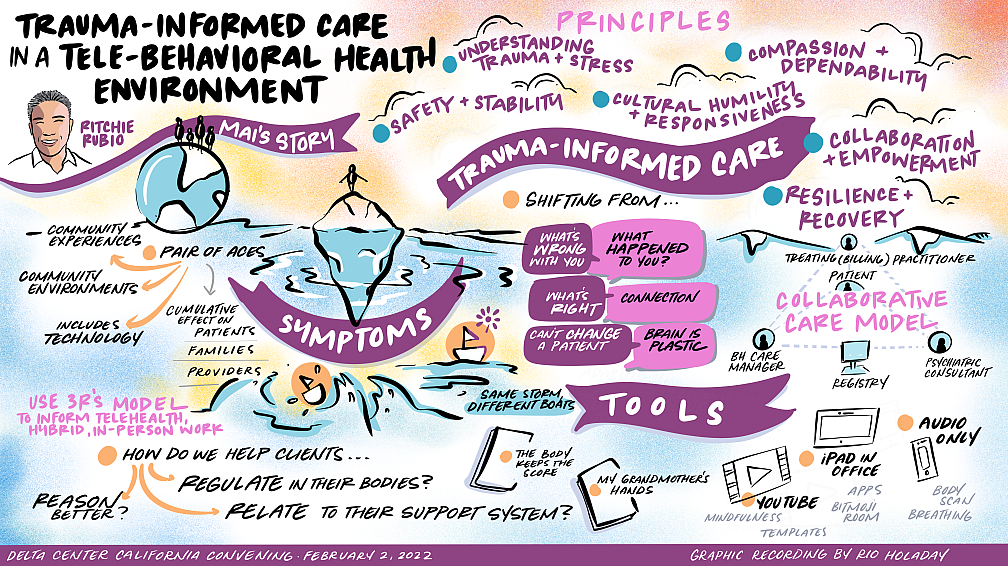 TRAUMA-INFORMED CARE
IN A TELE-BEHAVIORAL HEALTH
ENVIRONMENT
RITCHIE
RUBIO
MAI'S STORY
PRINCIPLES
UNDERSTANDING
TRAUMA + STRESS
COMPASSION +
DEPENDABILITY
SAFETY + STABILITY
CULTURAL HUMILITY
+ RESPONSIVENESS
COLLABORATION
+ EMPOWERMENT
RESILIENCE +
RECOVERY
TRAUMA-INFORMED CARE
SHIFTING FROM...
WHAT'S
WRONG
WITH YOU
WHAT
HAPPENED
TO YOU?
WHAT'S
RIGHT
CONNECTION
CAN'T CHANGE
A PATIENT
BRAIN IS
PLASTIC
COMMUNITY
EXPERIENCES
PAIR OF ACES
COMMUNITY
ENVIRONMENTS
INCLUDES
TECHNOLOGY
CUMULATIVE
EFFECT ON
PATIENTS
FAMILIES
PROVIDERS
SYMPTOMS
SAME STORM,
DIFFERENT BOATS
TREATING (BILLING) PRACTITIONER
PATIENT
COLLABORATIVE
CARE MODEL
BH CARE
MANAGER
REGISTRY
PSYCHIATRIC
CONSULTANT
USE 3R'S MODEL
TO INFORM TELEHEALTH,
HYBRID, IN-PERSON WORK
HOW DO WE HELP CLIENTS...
REGULATE IN THEIR BODIES?
REASON
BETTER?
RELATE TO THEIR SUPPORT SYSTEM?
TOOLS
THE BODY
KEEPS THE
SCORE
MY GRANDMOTHER'S
HANDS
YOUTUBE
MINDFULNESS
TEMPLATES
iPAD IN
OFFICE
APPS
BITMOJI
ROOM
AUDIO
ONLY
BODY
SCAN
BREATHING
DELTA CENTER CALIFORNIA CONVENING · FEBRUARY 2, 2022
GRAPHIC RECORDING BY RIO HOLADAY